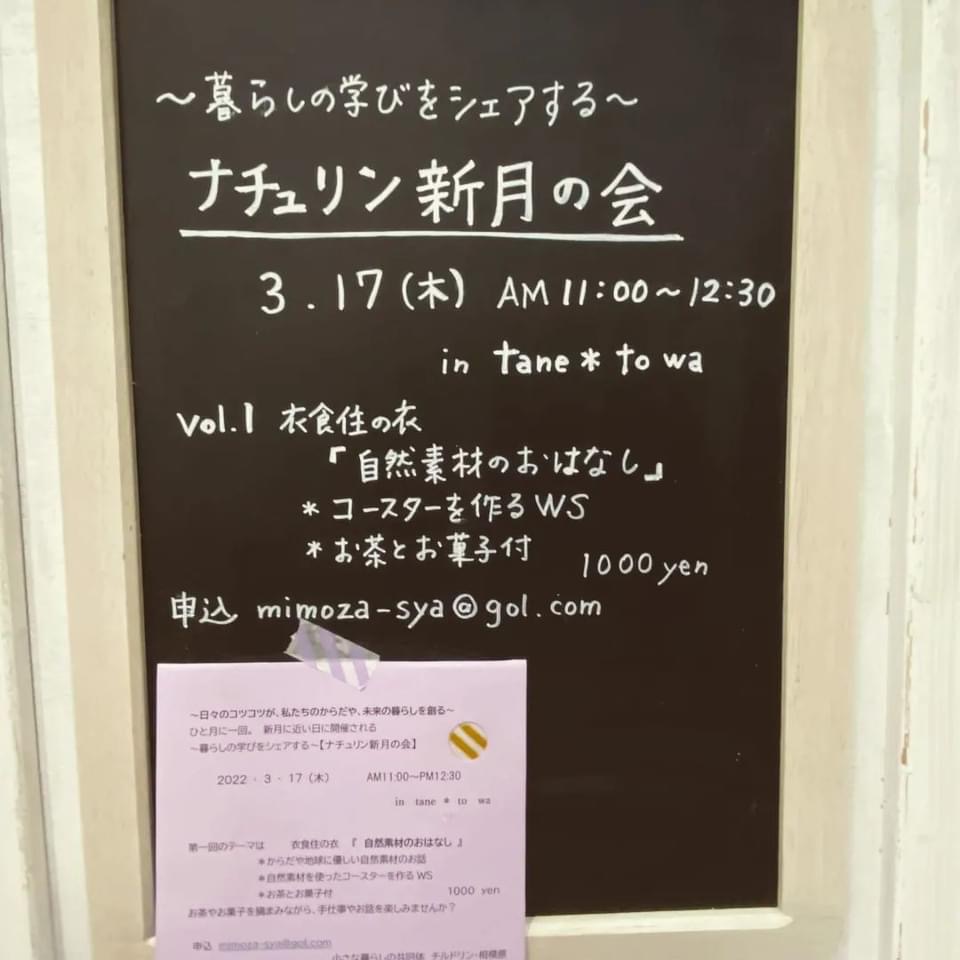 ～暮らしの学びをシェアする～
ナチュリン新月の会
3.17(木) AM 11:00～12:30
in tane * to wa
vol.1 衣食住の衣
『自然素材のおはなし』
* コースターを作るWS
* お茶とお菓子付
1000yen
申込 mimoza-sya@gol.com
～日々のコツコツが、私たちのからだや、未来の暮らしを創る～
ひと月に一回。 新月に近い日に開催される
～暮らしの学びをシェアする～【ナチュリン新月の会】
2022・3・17（木） AM11:00～PM12:30
in tane * to wa
第一回のテーマは 衣食住の衣 『 自然素材のおはなし 』
＊からだや地球に優しい自然素材のお話
＊自然素材を使ったコースターを作る WS
＊お茶とお菓子付 1000 yen
お茶やお菓子を摘まみながら、手仕事やお話を楽しみませんか？
申込 mimoza-sya@gol.com
小さな暮らしの共同体 チルドリン・相模原